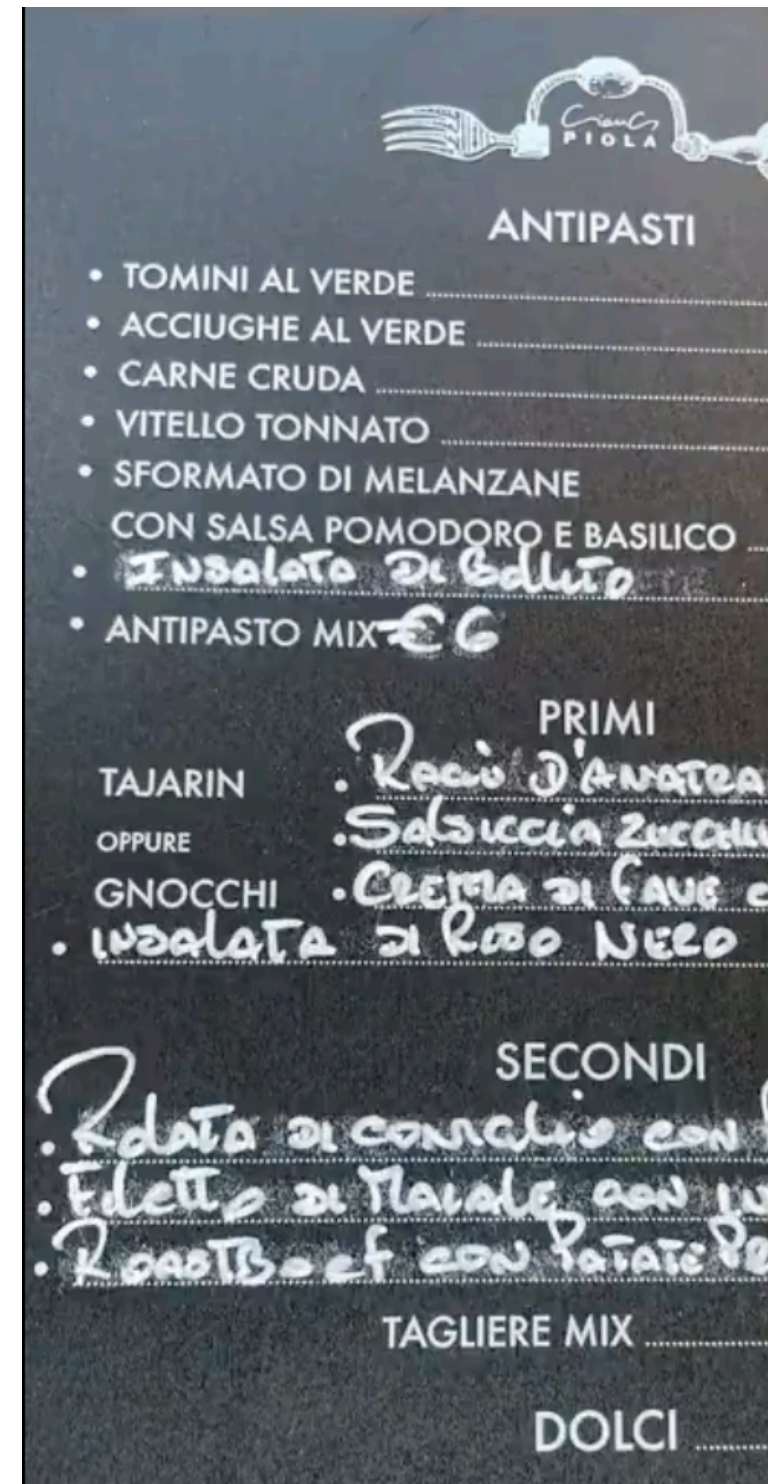 GianCa
PIOLA
ANTIPASTI
• TOMINI AL VERDE
• ACCIUGHE AL VERDE
• CARNE CRUDA
• VITELLO TONNATO
• SFORMATO DI MELANZANE
CON SALSA POMODORO E BASILICO
• INSALATA DI BOLLITO
• ANTIPASTO MIX €6
PRIMI
TAJARIN • RAGÙ D'ANATRA
OPPURE • SALSICCIA
GNOCCHI • CREMA DI FAVE
• INSALATA DI RISO NERO
SECONDI
• ROLATA DI CONIGLIO CON
• FILETTO DI MAIALE CON
• ROASTBEEF CON PATATE
TAGLIERE MIX
DOLCI